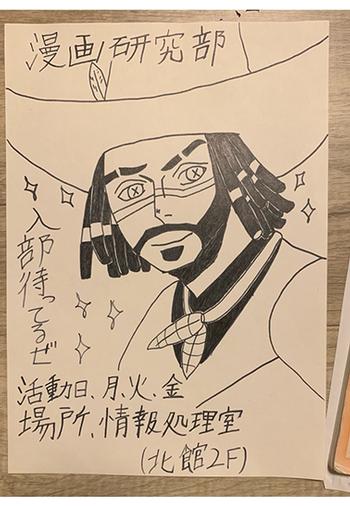 漫画研究部
入部待ってるぜ
活動日、月、火、金
場所、情報処理室
(北館2F)